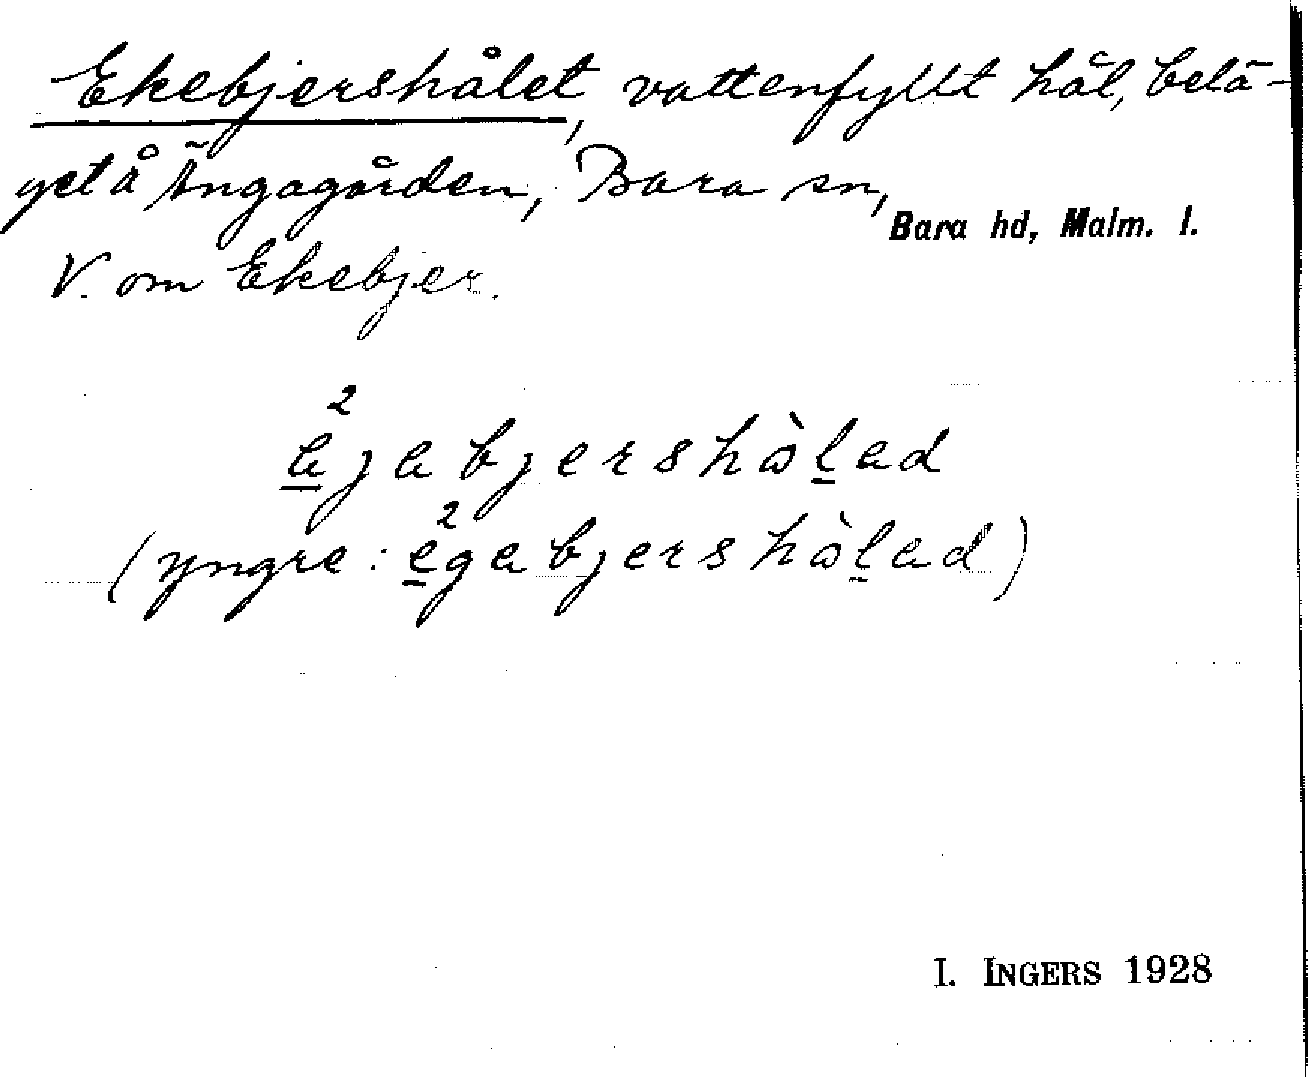 Ekebjershålet, vattenfyllt hål, belä-
get å Ängagården, Bara sn,
Bara hd, Malm. l.
V. om Ekebjer.
2
ejebjershòled
2
(yngre: egebjershòled)
I. INGERS 1928